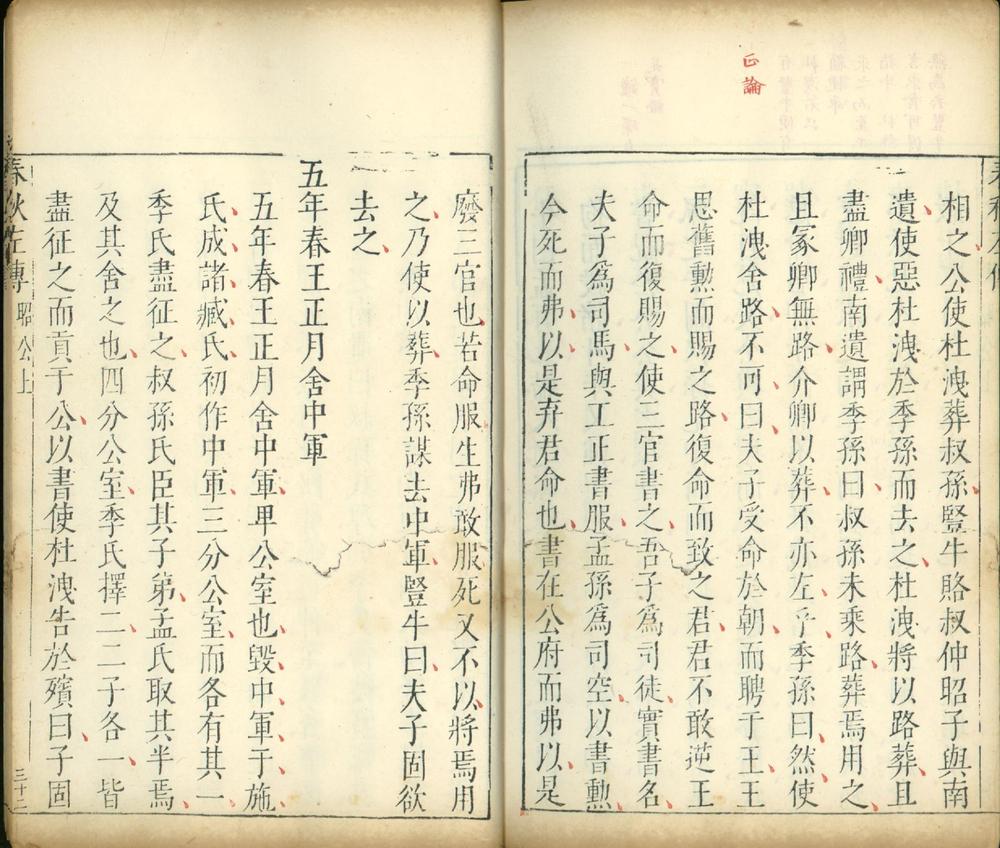 正論
相之公使杜洩葬叔孫豎牛賂叔仲昭子與南
遺使惡杜洩於季孫而去之杜洩將以路葬且
盡卿禮南遺謂季孫曰叔孫未乘路葬焉用之
且冢卿無路介卿以葬不亦左乎季孫曰然使
杜洩舍路不可曰夫子受命於朝而聘于王王
思舊勲而賜之路復命而致之君君不敢逆王
命而復賜之使三官書之吾子爲司徒實書名
夫子爲司馬與工正書服孟孫爲司空以書勲
今死而弗以是弃君命也書在公府而弗以是
廢三官也若命服生弗敢服死又不以將焉用
之乃使以葬季孫謀去中軍豎牛曰夫子固欲
去之
五年春王正月舍中軍
五年春王正月舍中軍卑公室也毀中軍于施
氏成諸臧氏初作中軍三分公室而各有其一
季氏盡征之叔孫氏臣其子弟孟氏取其半焉
及其舍之也四分公室季氏擇二二子各一皆
盡征之而貢于公以書使杜洩告於殯曰子固
春秋左傳 昭公上 三十二